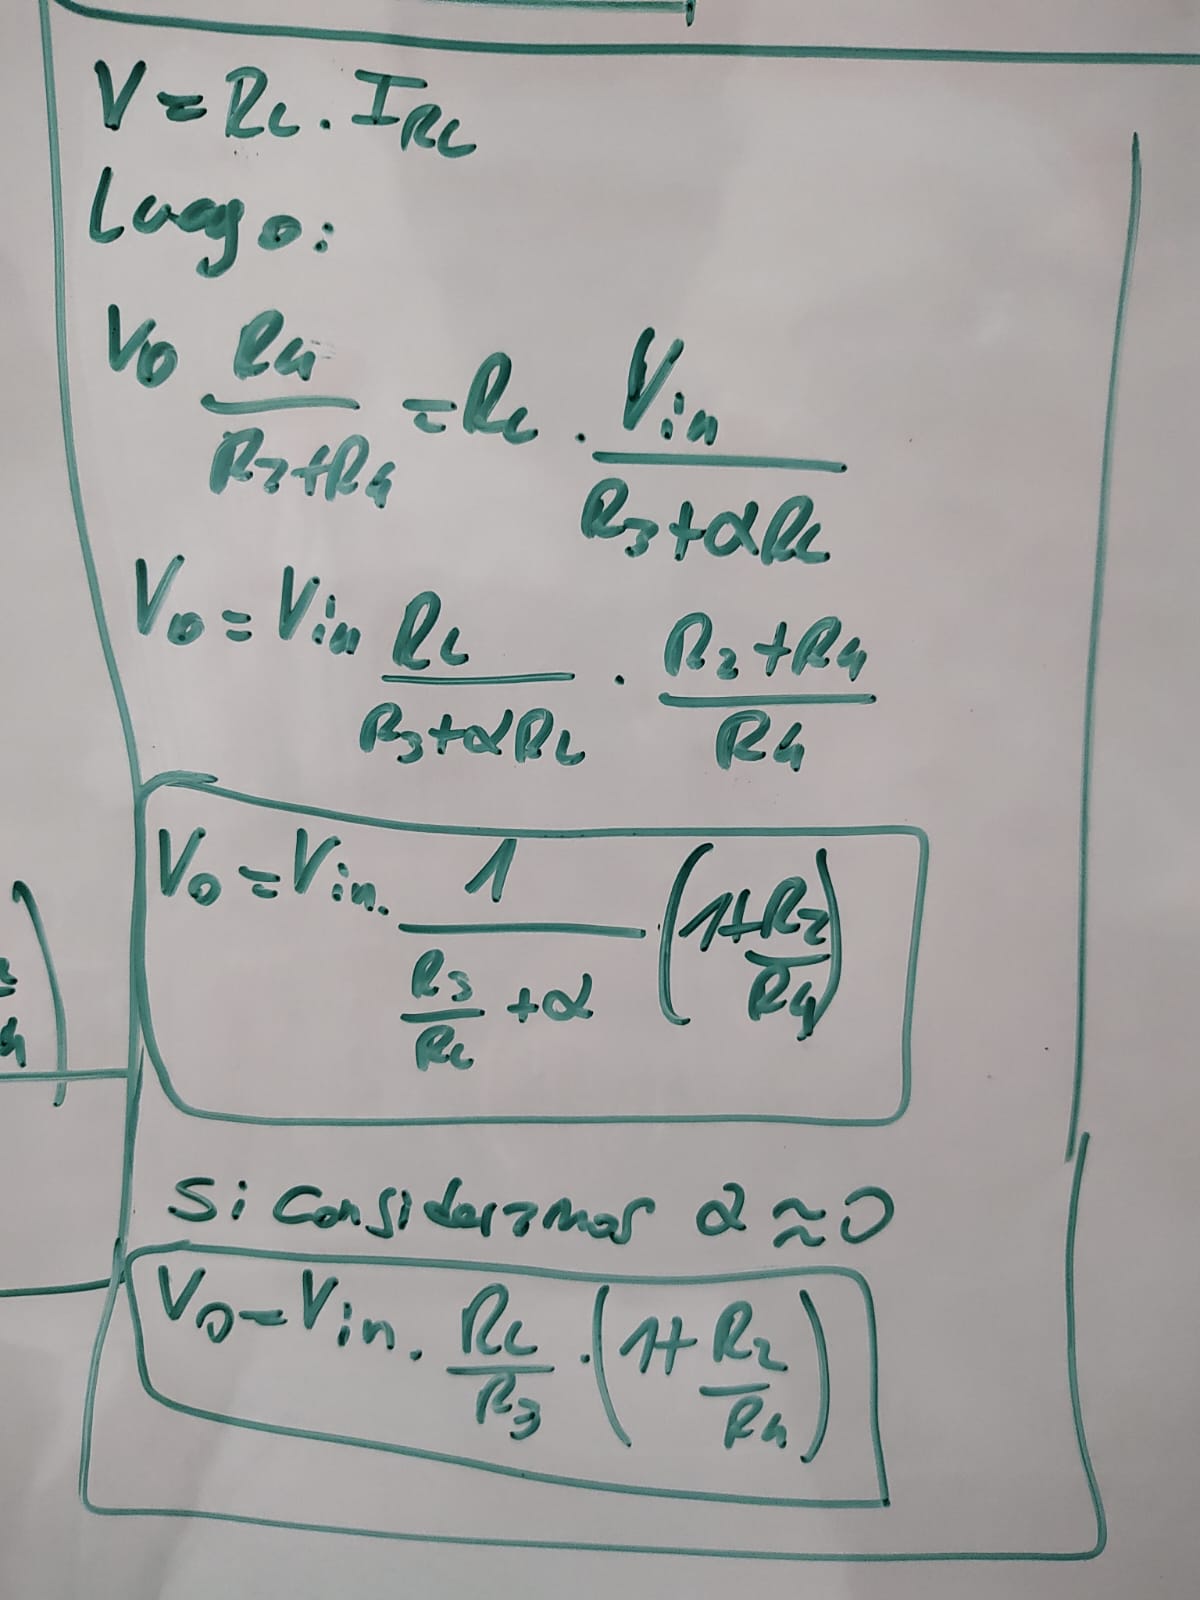 V = RL . IRL
Luego:
Vo R4/(R2+R4) = RL . Vin/(R3+αRL)
Vo = Vin RL/(R3+αRL) . (R2+R4)/R4
Vo = Vin . 1/(R3/RL + α) . (1+R2/R4)
Si consideramos α ≈ 0
Vo = Vin . RL/R3 . (1+R2/R4)